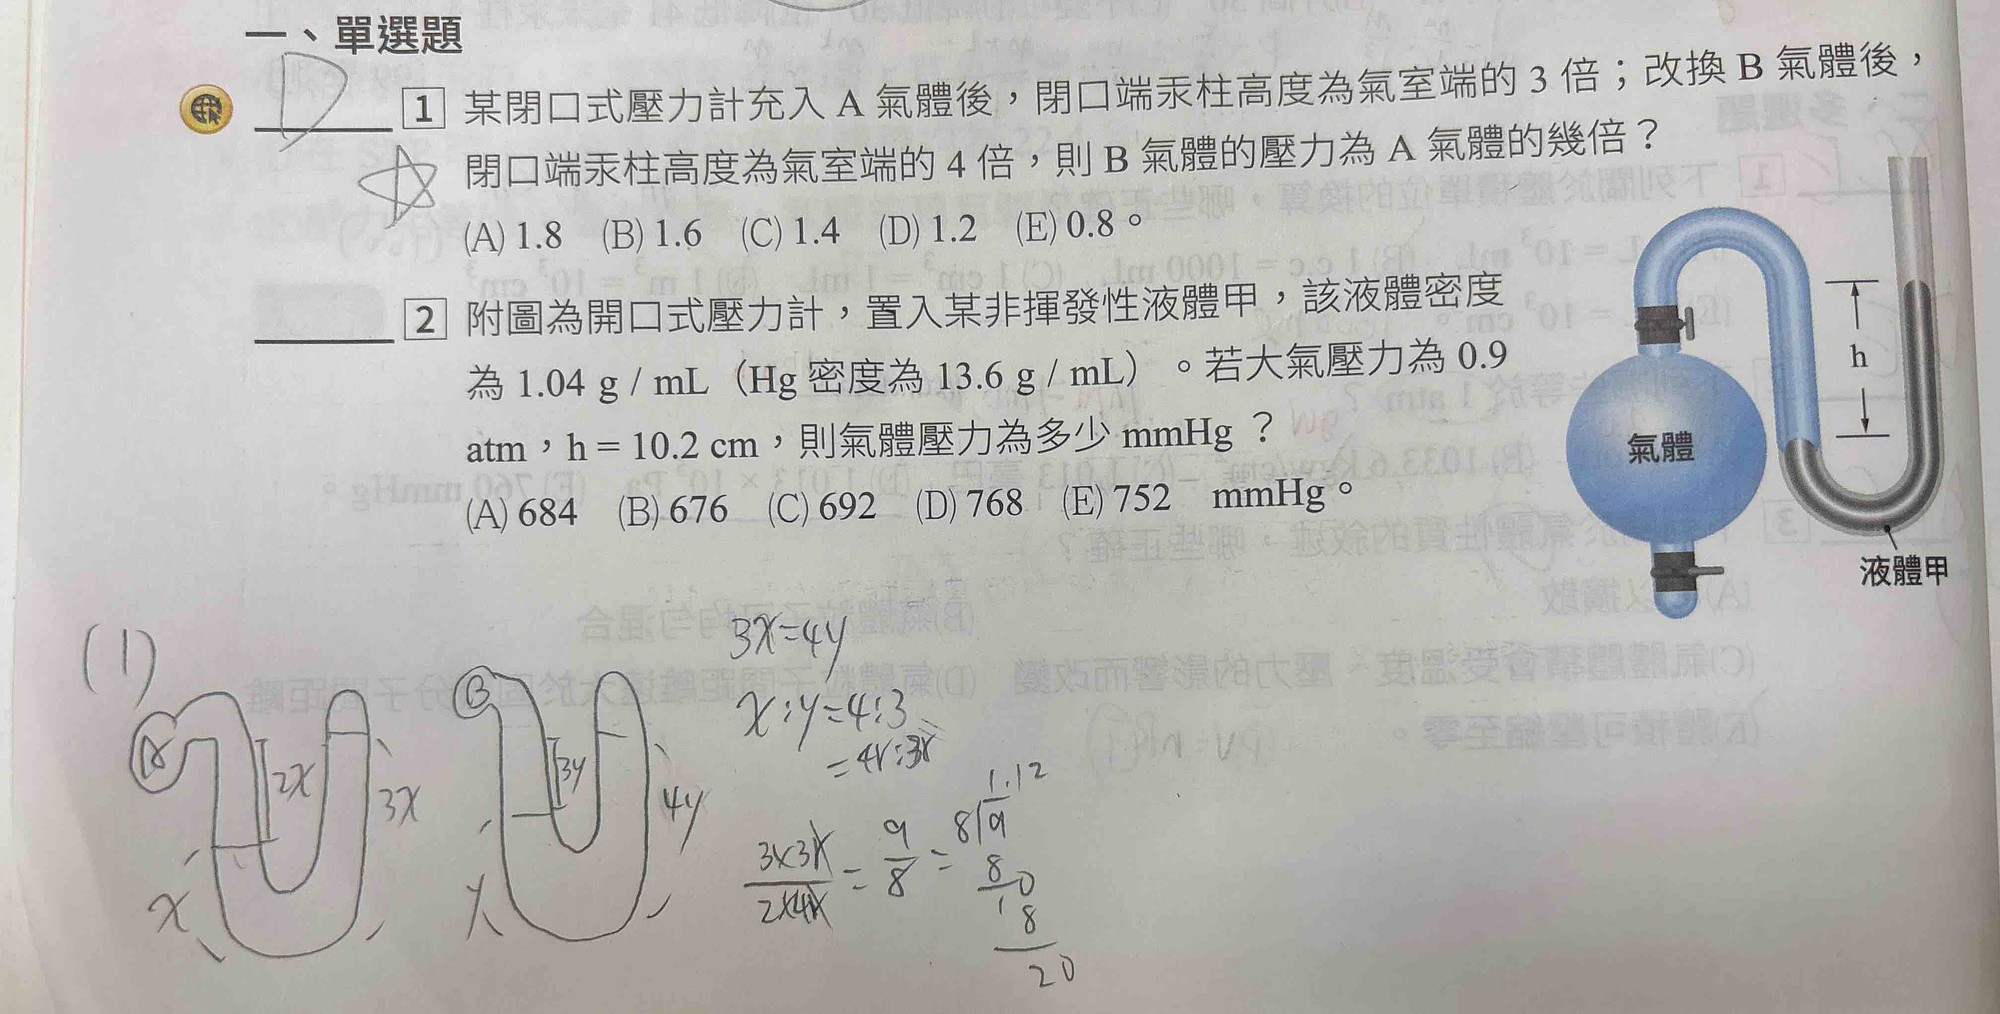 一、單選題
D 1 某閉口式壓力計充入 A 氣體後，閉口端汞柱高度為氣室端的 3 倍；改換 B 氣體後，
閉口端汞柱高度為氣室端的 4 倍，則 B 氣體的壓力為 A 氣體的幾倍？
(A) 1.8 (B) 1.6 (C) 1.4 (D) 1.2 (E) 0.8。
2 附圖為開口式壓力計，置入某非揮發性液體甲，該液體密度
為 1.04 g / mL（Hg 密度為 13.6 g / mL）。若大氣壓力為 0.9
atm，h = 10.2 cm，則氣體壓力為多少 mmHg ？
(A) 684 (B) 676 (C) 692 (D) 768 (E) 752 mmHg。
h
氣體
液體甲
(1)
A
2x
3x
x
B
3y
4y
y
3x=4y
x:y=4:3
=4r:3r
3×3r/2×4r = 9/8 =
1.12
8
9
8
10
8
20